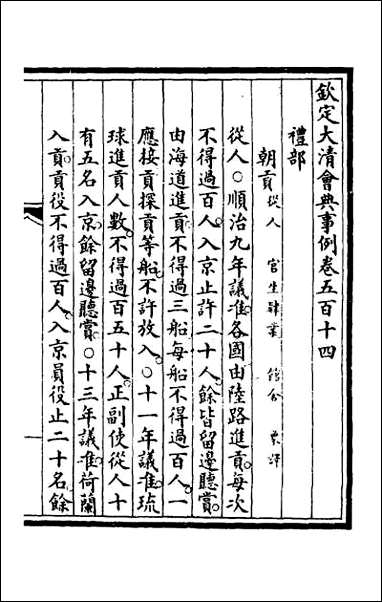 欽定大清會典事例卷五百十四
禮部
朝貢 從人 官生肄業 館舍 象譯
從人○順治九年議准各國由陸路進貢每次
不得過百人入京止許二十人餘皆留邊聽賞
由海道進貢不得過三船每船不得過百人一
應接貢探貢等船不許放入○十一年議准琉
球進貢人數不得過百五十人正副使從人十
有五名入京餘留邊聽賞○十三年議准荷蘭
入貢貢役不得過百人入京員役止二十名餘